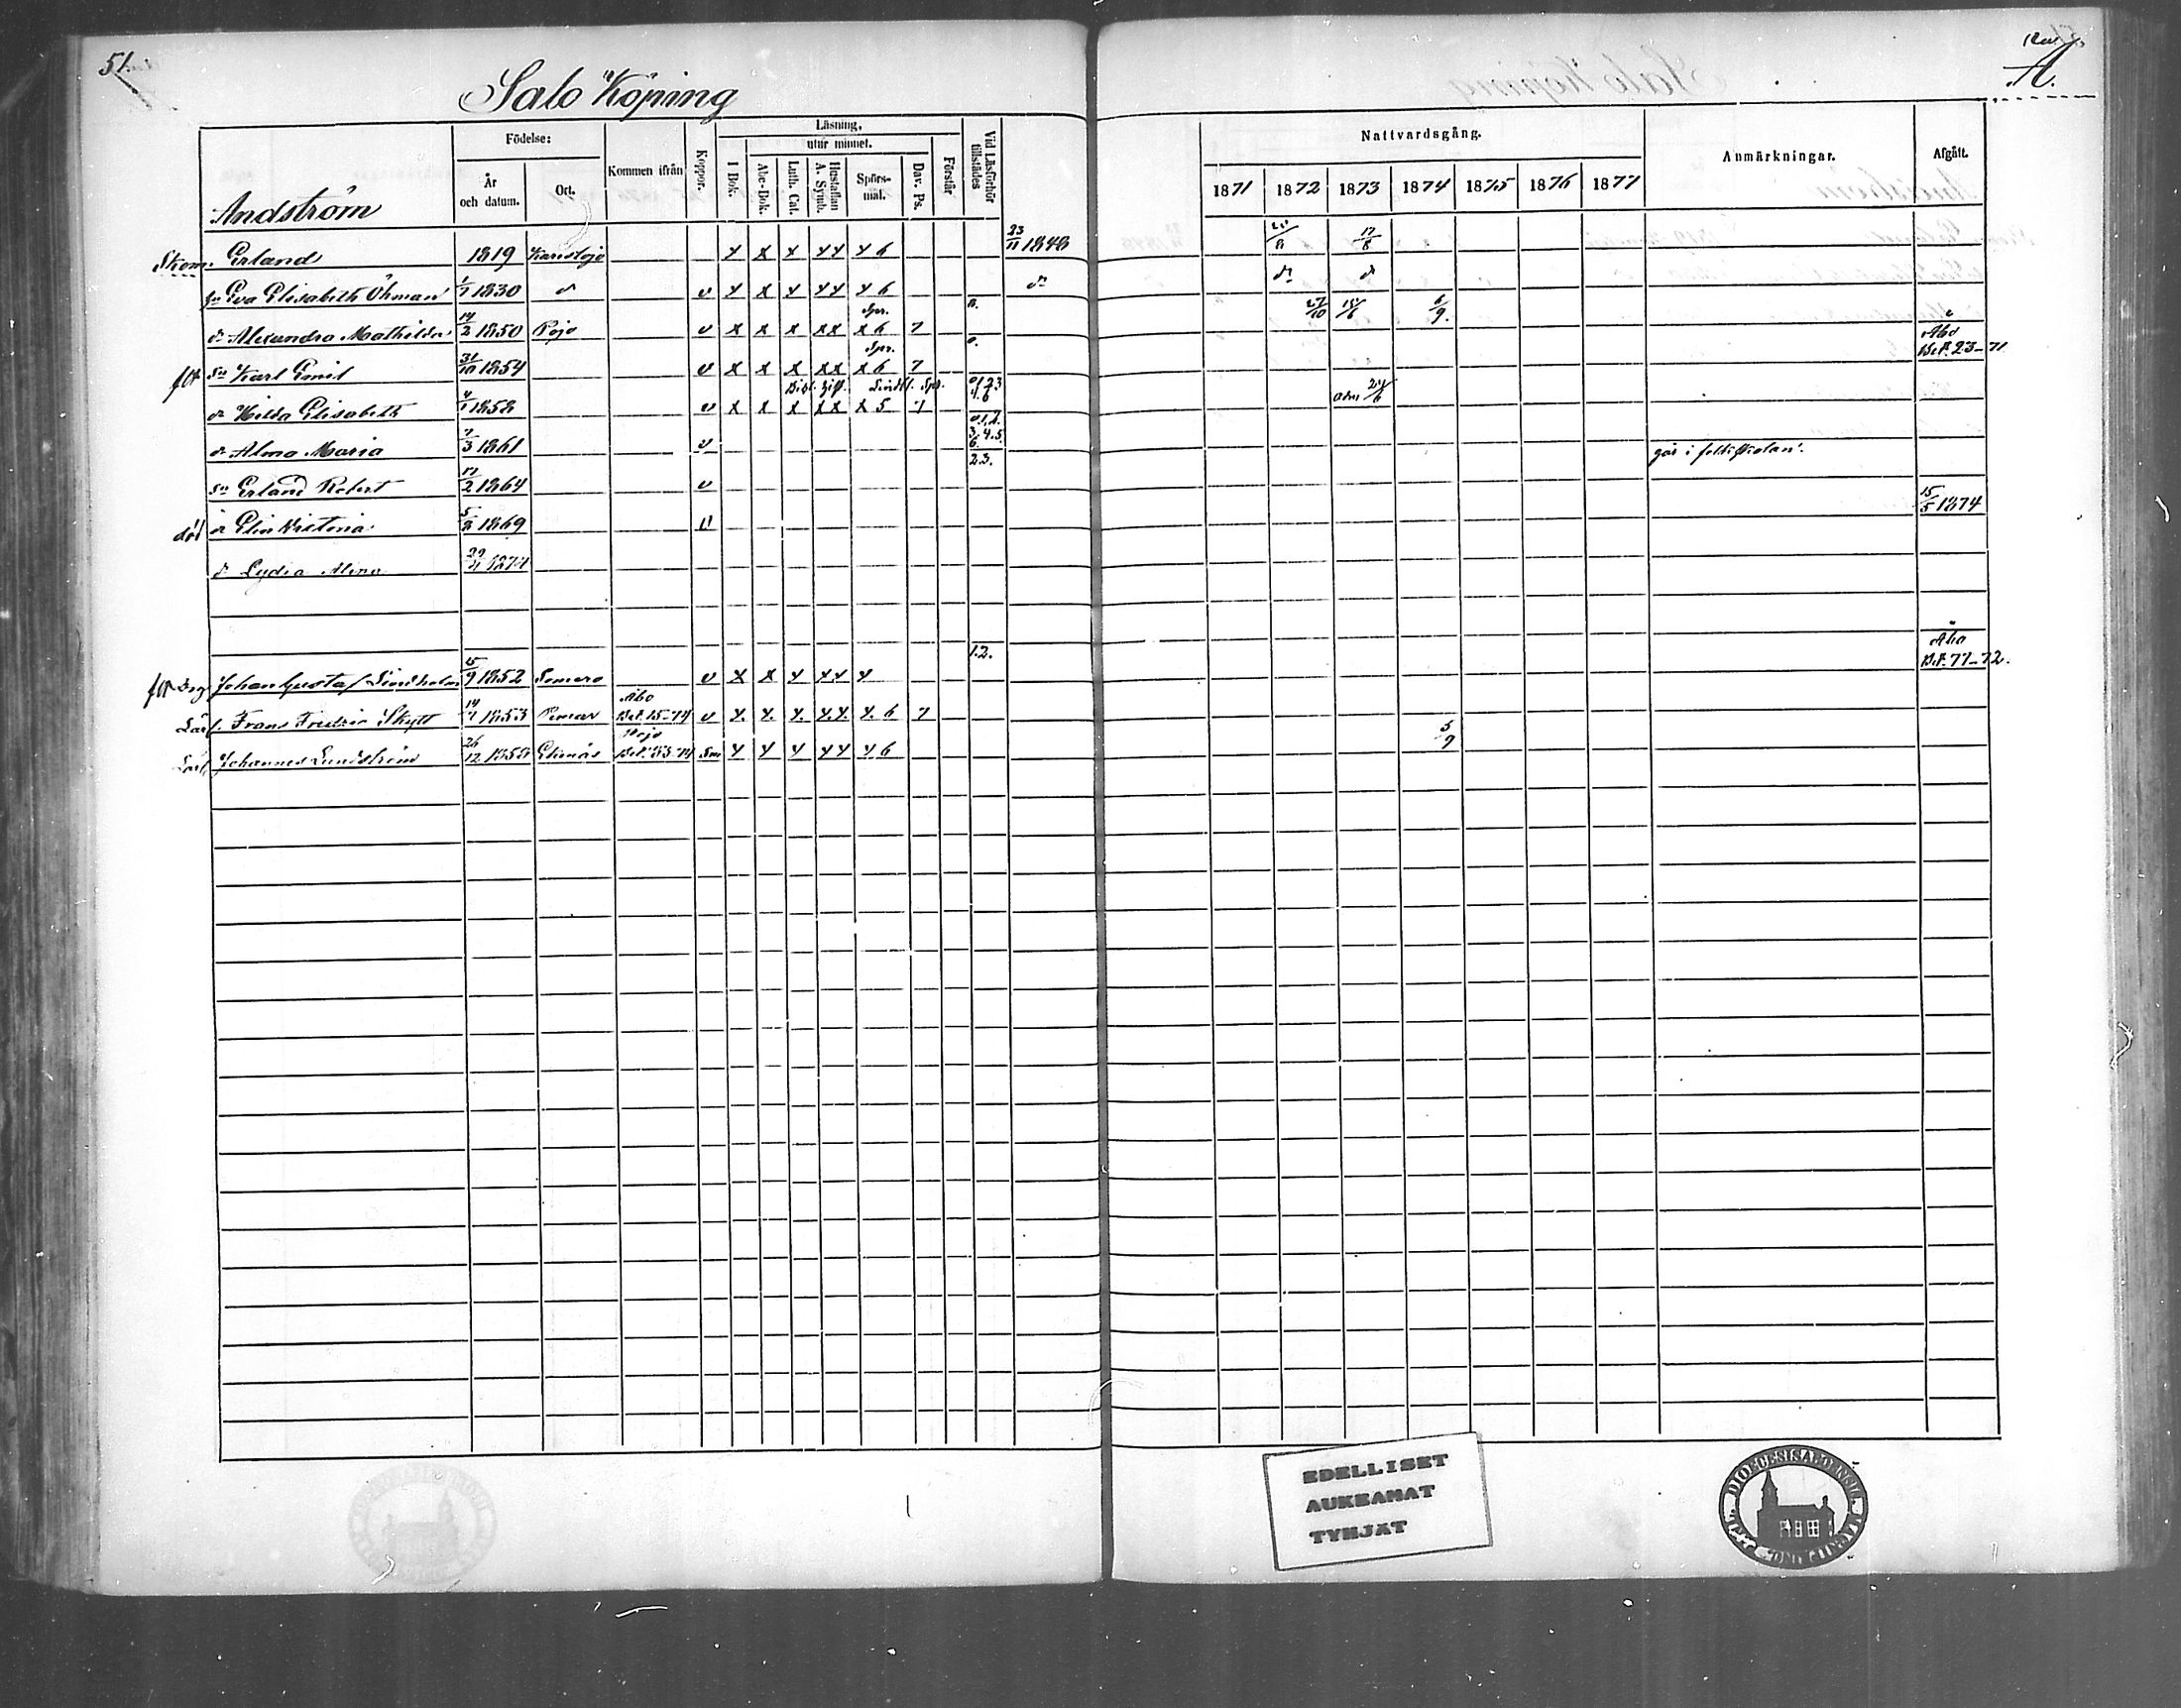 51.
Salo Köping
A.
Födelse:
Läsning,
utur minnet.
Nattvardsgång.
Anmärkningar.
Afgått.
År och datum.
Ort.
Kommen ifrån
Koppor.
I Bok.
Abc-Bok.
Luth. Cat.
Hustaflan A. Symb.
Spörs-mål.
Dav. Ps.
Förstår
Vid Läsförhör tillstädes
1871 1872 1873 1874 1875 1876 1877
Andström
Skom. Erland 1819 Karislojo x x x xx x 6 23/11 1848 17/8
Eva Elisabeth Öhman 1/1 1830 d v x x x xx x 6 do do d
Spr.
d. Alexandra Mathilda 14/2 1850 Pojo v x x x xx x 6 7 27/10 6/9.
Spr.
Åbo
flt sn Karl Emil 31/10 1854 v x x x xx x 6 7 Bet. 23-71
d. Hilda Elisabeth 4/1 1858 v x x x xx x 5 7 adm 24/6
0.1.2. 3.4.5. 6.
d. Alma Maria 7/3 1861 v går i folkskolan.
2.3.
sn Erland Robert 17/2 1864 v
död d. Elin Victoria 5/8 1869 v 15/5 1874
d. Lydia Alina
Åbo
1.2.
flt Johan Gustaf Lindholm 15/9 1852 Somero v x x x xx x Bet. 77-72.
Åbo
Lärl. Frans Fredric Skytt 14/7 1853 Pemar Bet. 15-74 v x. x. x. x.x. x. 6 7
Pojo
5/9
Lärl. Johannes Lundström 26/12 1858 Ekenäs Bet. 53-74 sm x x x xx x 6
EDELLISET
AUKEAMAT
TYHJÄT